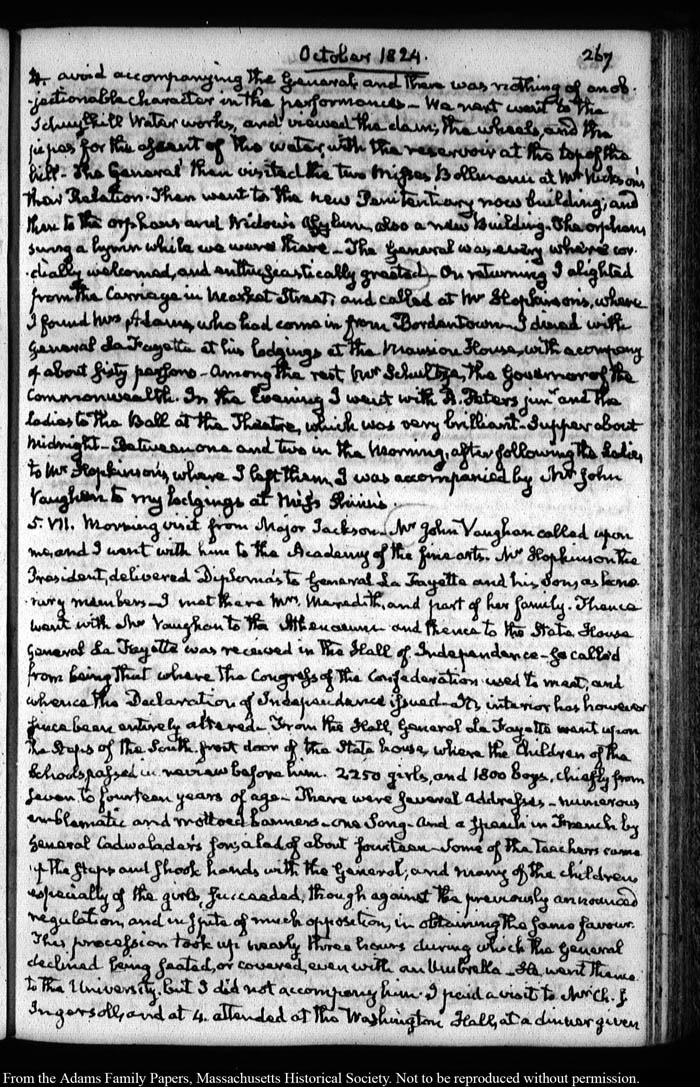 October 1824.
267
4. avoid accompanying the General and there was nothing of an ob-
jectionable character in the performances — We next went to the
Schuylkill Water works, and viewed the dam, the wheels, and the
pipes for the ascent of the water, with the reservoir at the top of the
hill — The General then visited the two Misses Bollmann at Mr Nicksons
their Relation. Then went to the new Penitentiary now building; and
then to the orphans and Widows Asylum, also a new Building. The orphans
sung a hymn while we were there — The General was every where cor-
dially welcomed, and enthusiastically greeted. On returning I alighted
from the Carriage in Market Street; and called at Mr Hopkinson's, where
I found Mrs Adams, who had come in from Bordentown — I dined with
General La Fayette at his lodgings at the Mansion House, with a company
of about sixty persons — Among the rest Mr Schultze, the Governor of the
Commonwealth. In the Evening I went with R. Peters junr and the
Ladies to the Ball at the Theatre, which was very brilliant — Supper about
midnight — Between one and two in the Morning, after following the Ladies
to Mr Hopkinson's, where I left them, I was accompanied by Mr John
Vaughan to my lodgings at Miss Pinnis.
5. VII. Morning visit from Major Jackson — Mr John Vaughan called upon
me, and I went with him to the Academy of the fine arts. Mr Hopkinson the
President, delivered Diploma's to General La Fayette and his Son, as hono-
rary members — I met there Mrs Meredith, and part of her family. Thence
went with Mr Vaughan to the Athenaeum and thence to the State House
General La Fayette was received in the Hall of Independence — So called
from being that where the Congress of the Confederation used to meet, and
whence the Declaration of Independence issued — Its interior has however
since been entirely altered — From the Hall, General La Fayette went upon
the Steps of the South front door of the State house, where the Children of the
Schools passed in review before him. 2250 girls, and 1800 boys, chiefly from
seven to fourteen years of age — There were several Addresses — numerous
emblematic and mottoed banners — one Song — And a speech in French by
General Cadwalader's son, a lad of about fourteen — Some of the teachers came
up the steps and shook hands with the General, and many of the children
especially of the girls, succeeded, though against the previously announced
regulation, and in spite of much opposition, in obtaining the same favour.
This procession took up nearly three hours during which the General
declined being seated, or covered, even with an Umbrella — He went thence
to the University, but I did not accompany him. I paid a visit to Mr Ch. J.
Ingersoll, and at 4. attended at the Washington Hall, at a dinner given
From the Adams Family Papers, Massachusetts Historical Society. Not to be reproduced without permission.